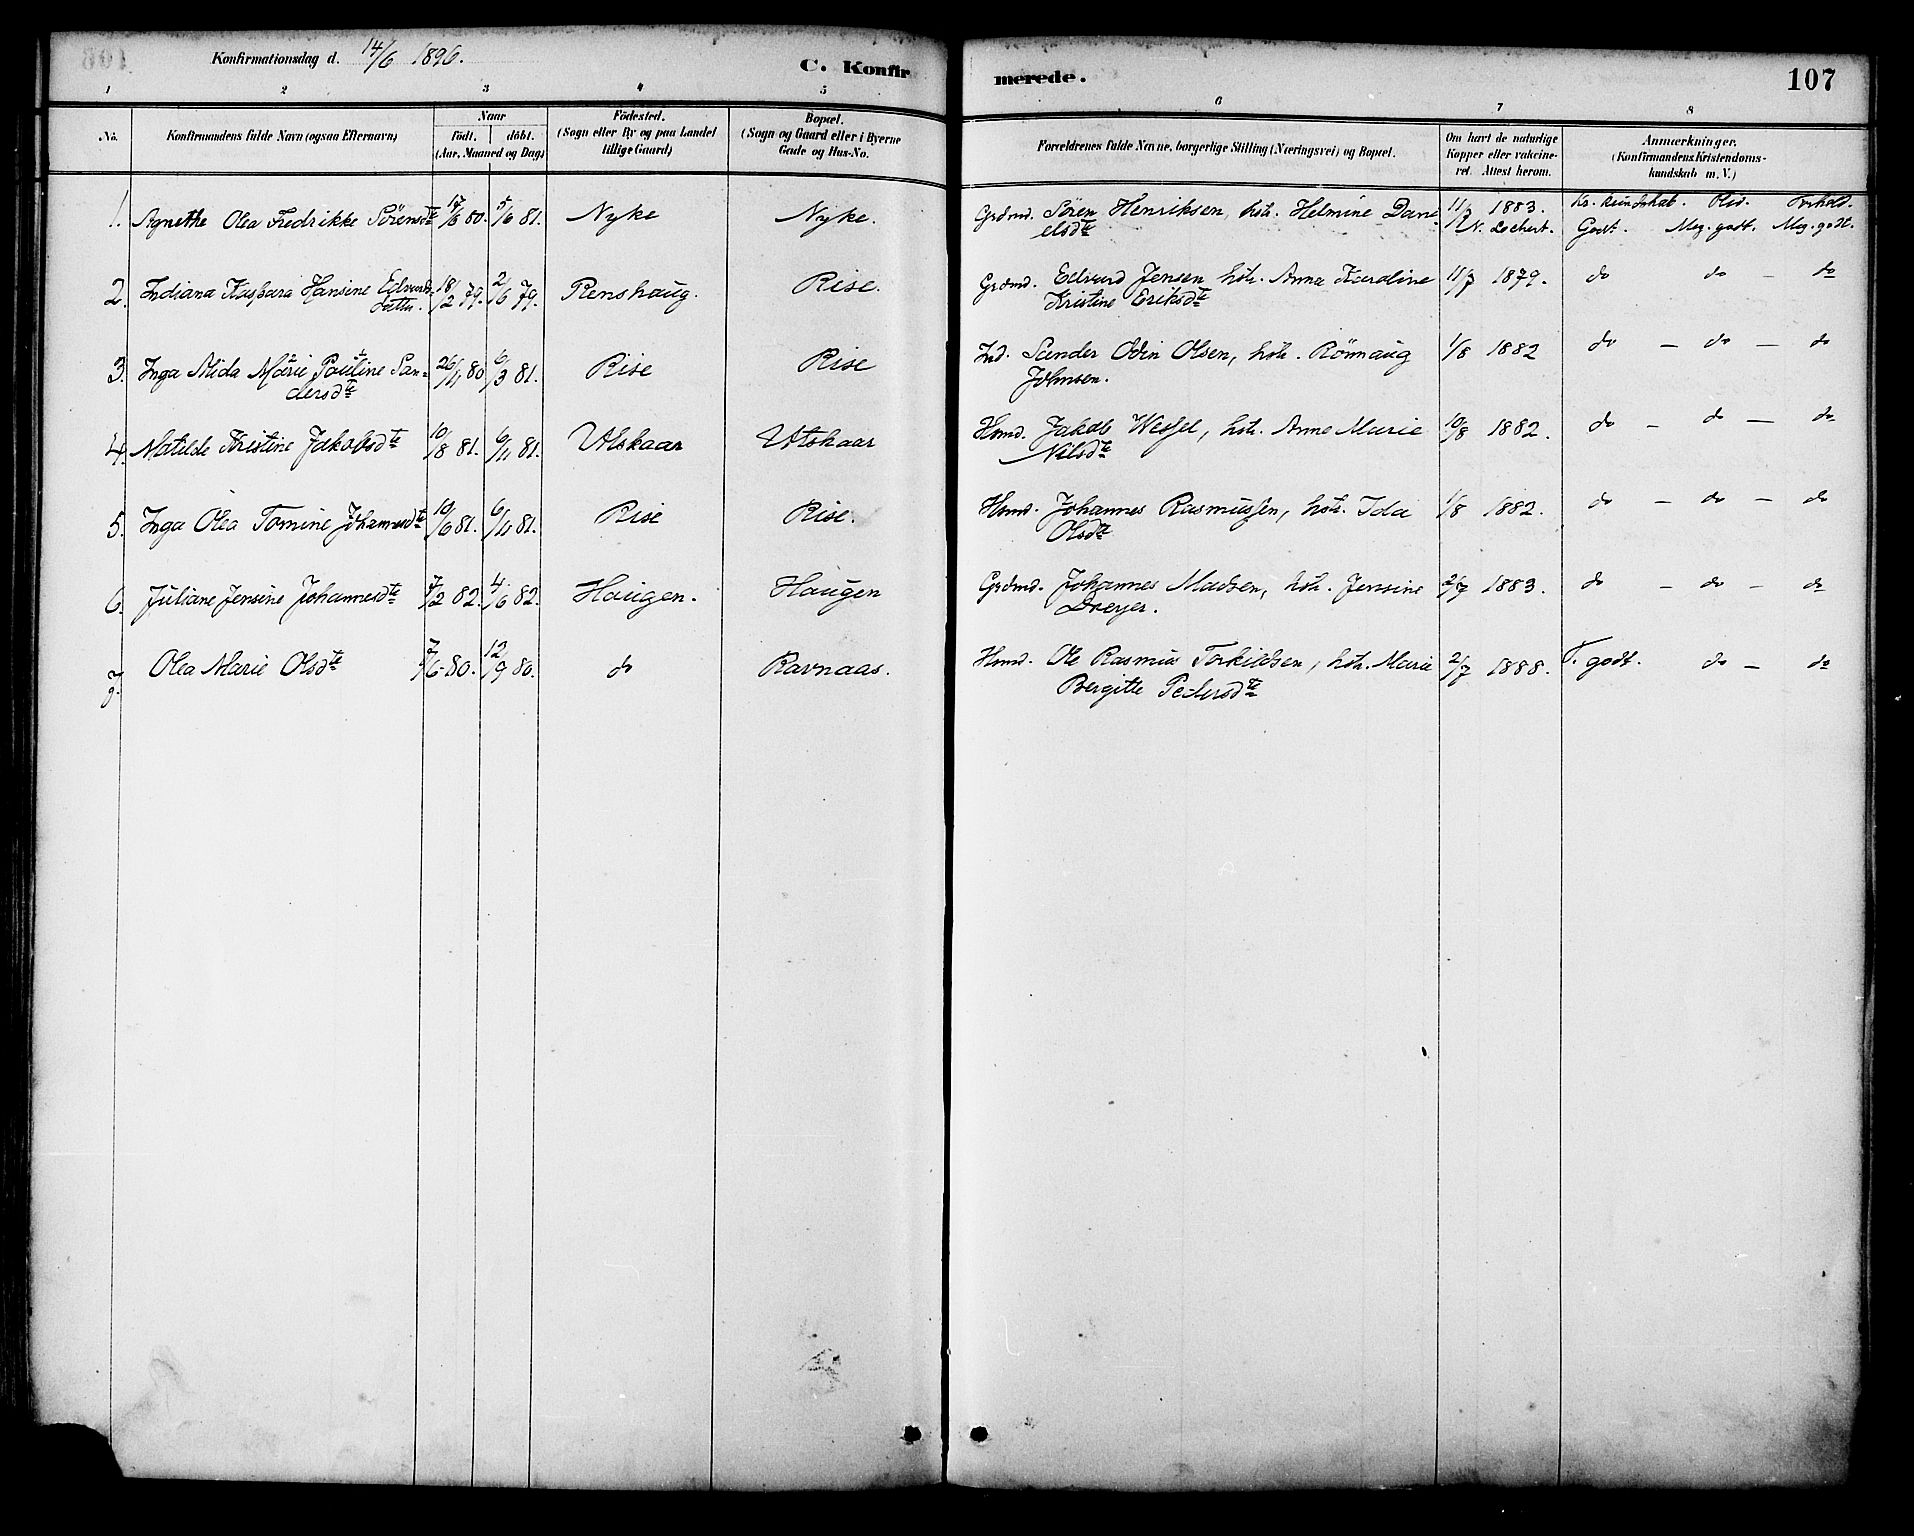 Konfirmationsdag d. 14/6 1896.
C. Konfirmerede.
107
1 2 3 4 5 6 7 8
No.
Konfirmandens fulde Navn (ogsaa Efternavn)
Naar
født. døbt.
(Aar, Maaned og Dag)
Fødested.
(Sogn eller By og paa Landet
tillige Gaard)
Bopæl.
(Sogn og Gaard eller i Byerne
Gade og Hus-No.
Forældrenes fulde Navne, borgerlige Stilling (Næringsvei) og Bopæl.
Om havt de naturlige
Kopper eller vakcine-
ret. Attest herom.
Anmærkninger.
(Konfirmandens Kristendoms-
kundskab m. V.)
1. Agnethe Olea Fredrikke Sörensdte 17/6 80. 5/6 81. Nyke Nyke. Grdmd. Sören Henriksen, hstr. Helmine Dani- 11/7 1883. Kr. kundskab. Flid. Forhold.
elsdte N. Lochert. Godt. Meg. godt. Meg. godt.
2. Indiana Kaspara Hansine Edvards- 18/2 79. 2/6 79. Renshaug. Rise. Grdmd. Edvard Jensen hstr. Anna Karoline 11/7 1879. do do — do
datter. Kristine Eriksdte
3. Inga Alida Marie Pauline San- 26/11 80 6/3 81. Rise Rise Ind. Sander Odin Olsen, hstr. Rönnaug 1/8 1882 do — do — do
dersdte Johnsen.
4. Matilde Kristine Jakobsdte 10/8 81. 6/11 81. Utskaar Utskaar Hsmd. Jakob Wessel, hstr. Anne Marie 10/8 1882. do — do — do
Nilsdte
5. Inga Olea Tomine Johannesdte 10/6 81. 6/11 81. Rise Rise. Hsmd. Johannes Rasmussen, hstr. Ida 1/8 1882. do — do — do
Olsdte
6. Juliane Jensine Johannesdte 7/2 82. 4/6 82. Haugen. Haugen Grdmd. Johannes Madsen, hstr. Jensine 2/7 1883. do — do — do
Dreyer.
7. Olea Marie Olsdte 7/6 80. 12/9 80. do Ravnaas. Hsmd. Ole Rasmus Torkildsen, hstr. Marie 2/7 1888. T. godt. do — do
Bergitte Pedersdte